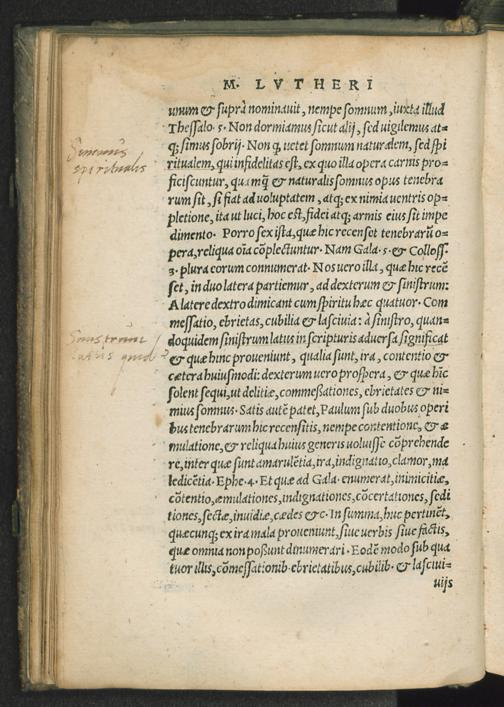 M. LVTHERI
unum & suprà nominauit, nempe somnum, iuxta illud
Thessalo. 5. Non dormiamus sicut alij, sed uigilemus at=
q; simus sobrij. Non q, uetet somnum naturalem, sed spi
ritualem, qui infidelitas est, ex quo illa opera carnis pro=
ficiscuntur, quamq̃ & naturalis somnus opus tenebra
rum sit, si fiat ad uoluptatem, atq; ex nimia uentris op=
pletione, ita ut luci, hoc est, fidei atq; armis eius sit impe
dimento. Porro sex ista, quæ hic recenset tenebrarũ o=
pera, reliqua oīa cōplectuntur. Nam Gala. 5. & Colloss.
3. plura eorum connumerat. Nos uero illa, quæ hic recē
set, in duo latera partiemur, ad dexterum & sinistrum:
A latere dextro dimicant cum spiritu hæc quatuor. Com
messatio, ebrietas, cubilia & lasciuia: à sinistro, quan=
doquidem sinistrum latus in scripturis aduersa significat
& quæ hinc proueniunt, qualia sunt, ira, contentio &
cætera huiusmodi: dexterum uero prospera, & quæ hīc
solent sequi, ut delitiæ, commeßationes, ebrietates & ni=
mius somnus. Satis autē patet, Paulum sub duobus operi
bus tenebrarum hic recensitis, nempe contentione, & æ
mulatione, & reliqua huius generis uoluisse cōprehende
re, inter quæ sunt amarulētia, ira, indignatio, clamor, ma
ledicētia. Ephe. 4. Et quæ ad Gala. enumerat, inimicitiæ,
cōtentio, æmulationes, indignationes, cōcertationes, sedi
tiones, sectæ, inuidiæ, cædes &c. In summa, huc pertinēt,
quæcunq; ex ira mala proueniunt, siue uerbis siue factis,
quæ omnia non poßunt dinumerari. Eodē modo sub qua
tuor illis, cōmessationib. ebrietatibus, cubilib. & lasciui=
uijs
Somnus
spiritualis
Sinistrum
latus quid